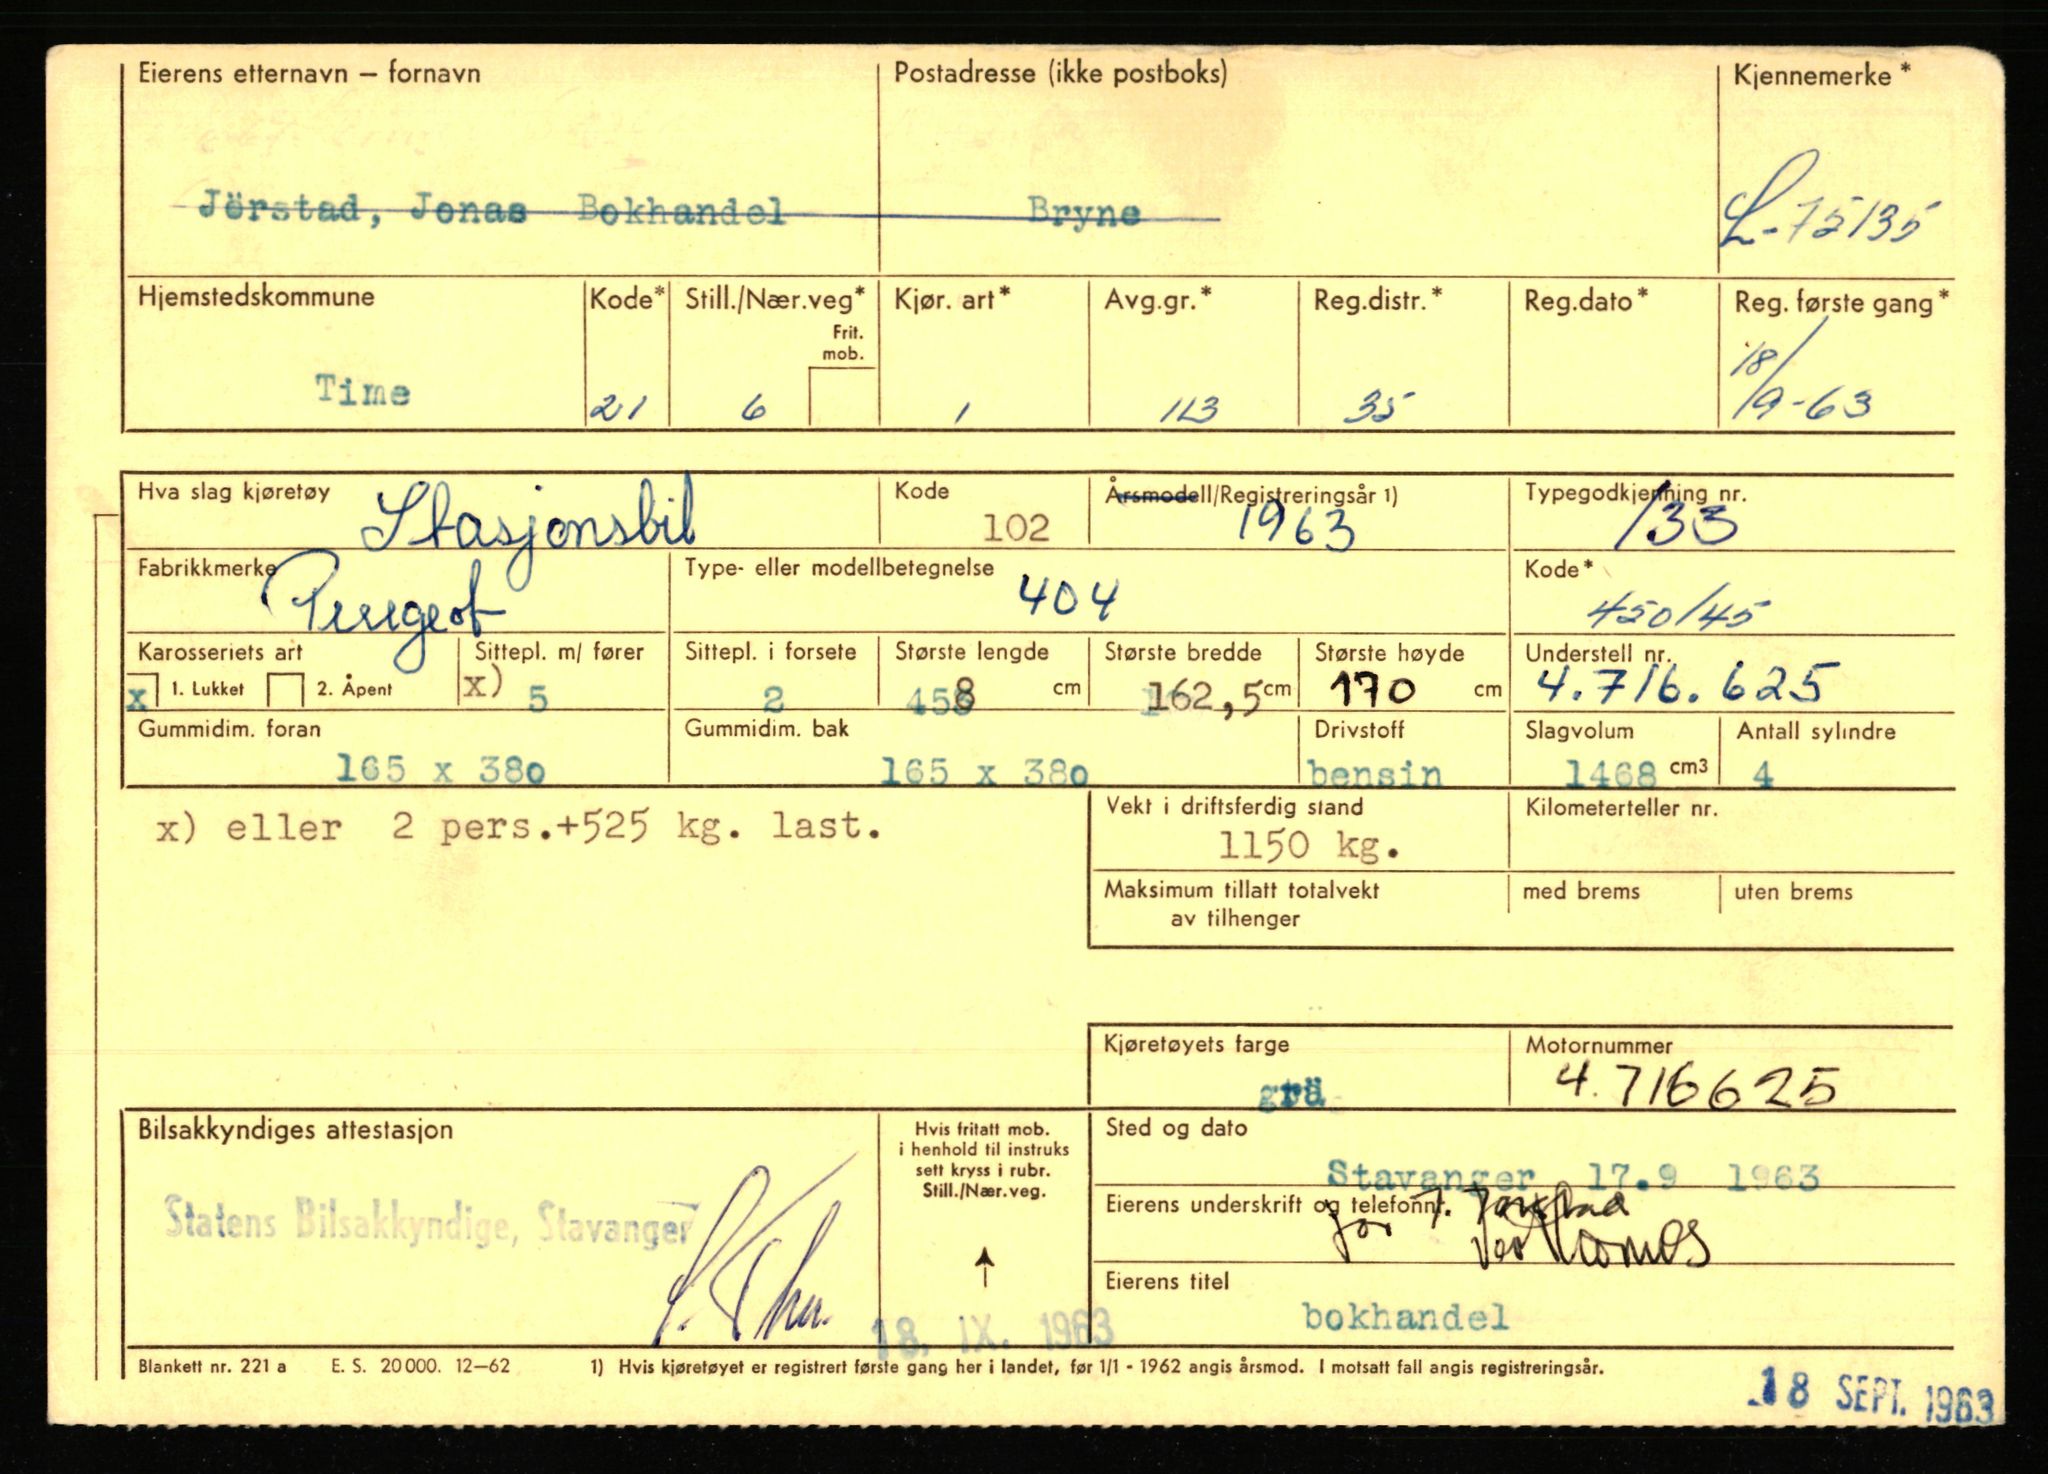 Eierens etternavn – fornavn
Postadresse (ikke postboks)
Kjennemerke *
Jörstad, Jonas Bokhandel
Bryne
L-75135
Hjemstedskommune
Kode*
Still./Nær.veg*
Kjør. art*
Avg.gr.*
Reg.distr.*
Reg.dato*
Reg. første gang*
Frit. mob.
Time
21
6
1
113
35
18/9-63
Hva slag kjøretøy
Stasjonsbil
Kode
102
Årsmodell/Registreringsår 1)
1963
Typegodkjenning nr.
133
Fabrikkmerke
Peugeot
Type- eller modellbetegnelse
404
Kode*
450/45
Karosseriets art
x 1. Lukket 2. Åpent
Sittepl. m/ fører
x) 5
Sittepl. i forsete
2
Største lengde
458 cm
Største bredde
162,5 cm
Største høyde
170 cm
Understell nr.
4.716.625
Gummidim. foran
165 x 380
Gummidim. bak
165 x 380
Drivstoff
bensin
Slagvolum
1468 cm3
Antall sylindre
4
x) eller 2 pers.+525 kg. last.
Vekt i driftsferdig stand
1150 kg.
Kilometerteller nr.
Maksimum tillatt totalvekt
av tilhenger
med brems
uten brems
Kjøretøyets farge
grä
Motornummer
4.716625
Bilsakkyndiges attestasjon
Statens Bilsakkyndige, Stavanger
Hvis fritatt mob.
i henhold til instruks
sett kryss i rubr.
Still./Nær.veg.
18. IX. 1963
Sted og dato
Stavanger 17.9 1963
Eierens underskrift og telefonnr.
for J. Jørstad
Eierens titel
bokhandel
Blankett nr. 221 a E. S. 20 000. 12–62 1) Hvis kjøretøyet er registrert første gang her i landet, før 1/1 - 1962 angis årsmod. I motsatt fall angis registreringsår.
18 SEPT. 1963